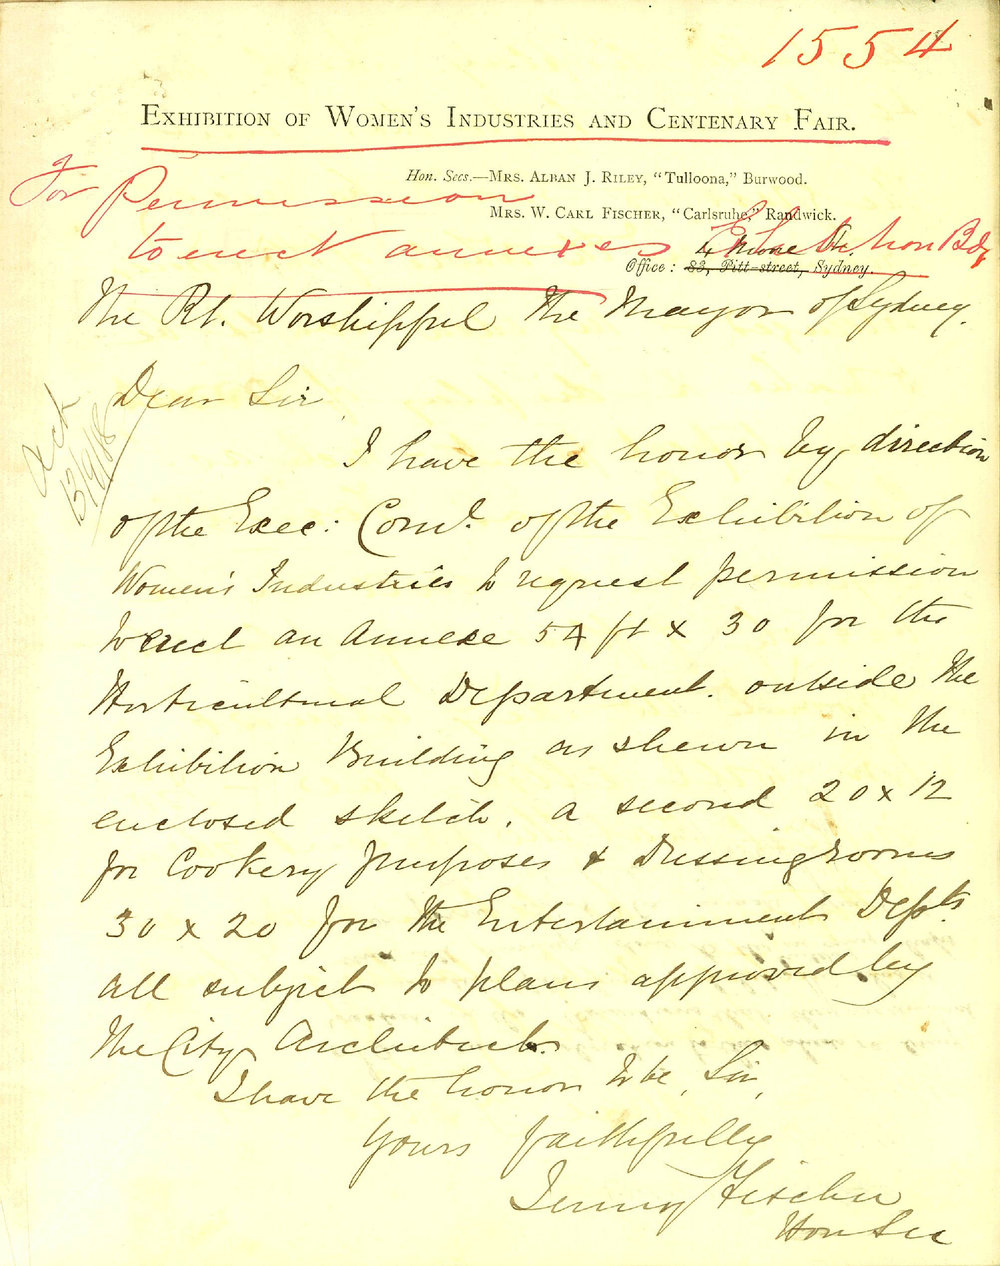 1554
EXHIBITION OF WOMEN'S INDUSTRIES AND CENTENARY FAIR.
Hon. Secs.—MRS. ALBAN J. RILEY, "Tulloona," Burwood.
MRS. W. CARL FISCHER, "Carlsruhe," Randwick.
For Permission
to erect annexes Exhibition Bdg
Moore St.
Office: 83, Pitt-street, Sydney.
The Rt. Worshipful the Mayor of Sydney.
Dear Sir
Ack
13/9/88
I have the honor by direction
of the Exec: Com. of the Exhibition of
Women's Industries to request permission
to erect an Annexe 54 ft x 30 for the
Horticultural Department. outside the
Exhibition Building as shewn in the
enclosed sketch. a second 20 x 12
for Cookery purposes & Dressing rooms
30 x 20 for the Entertainment Depts.
all subject to plans approved by
the City Architect.
I have the honor to be, Sir,
Yours faithfully
Jenny Fischer
Hon Sec